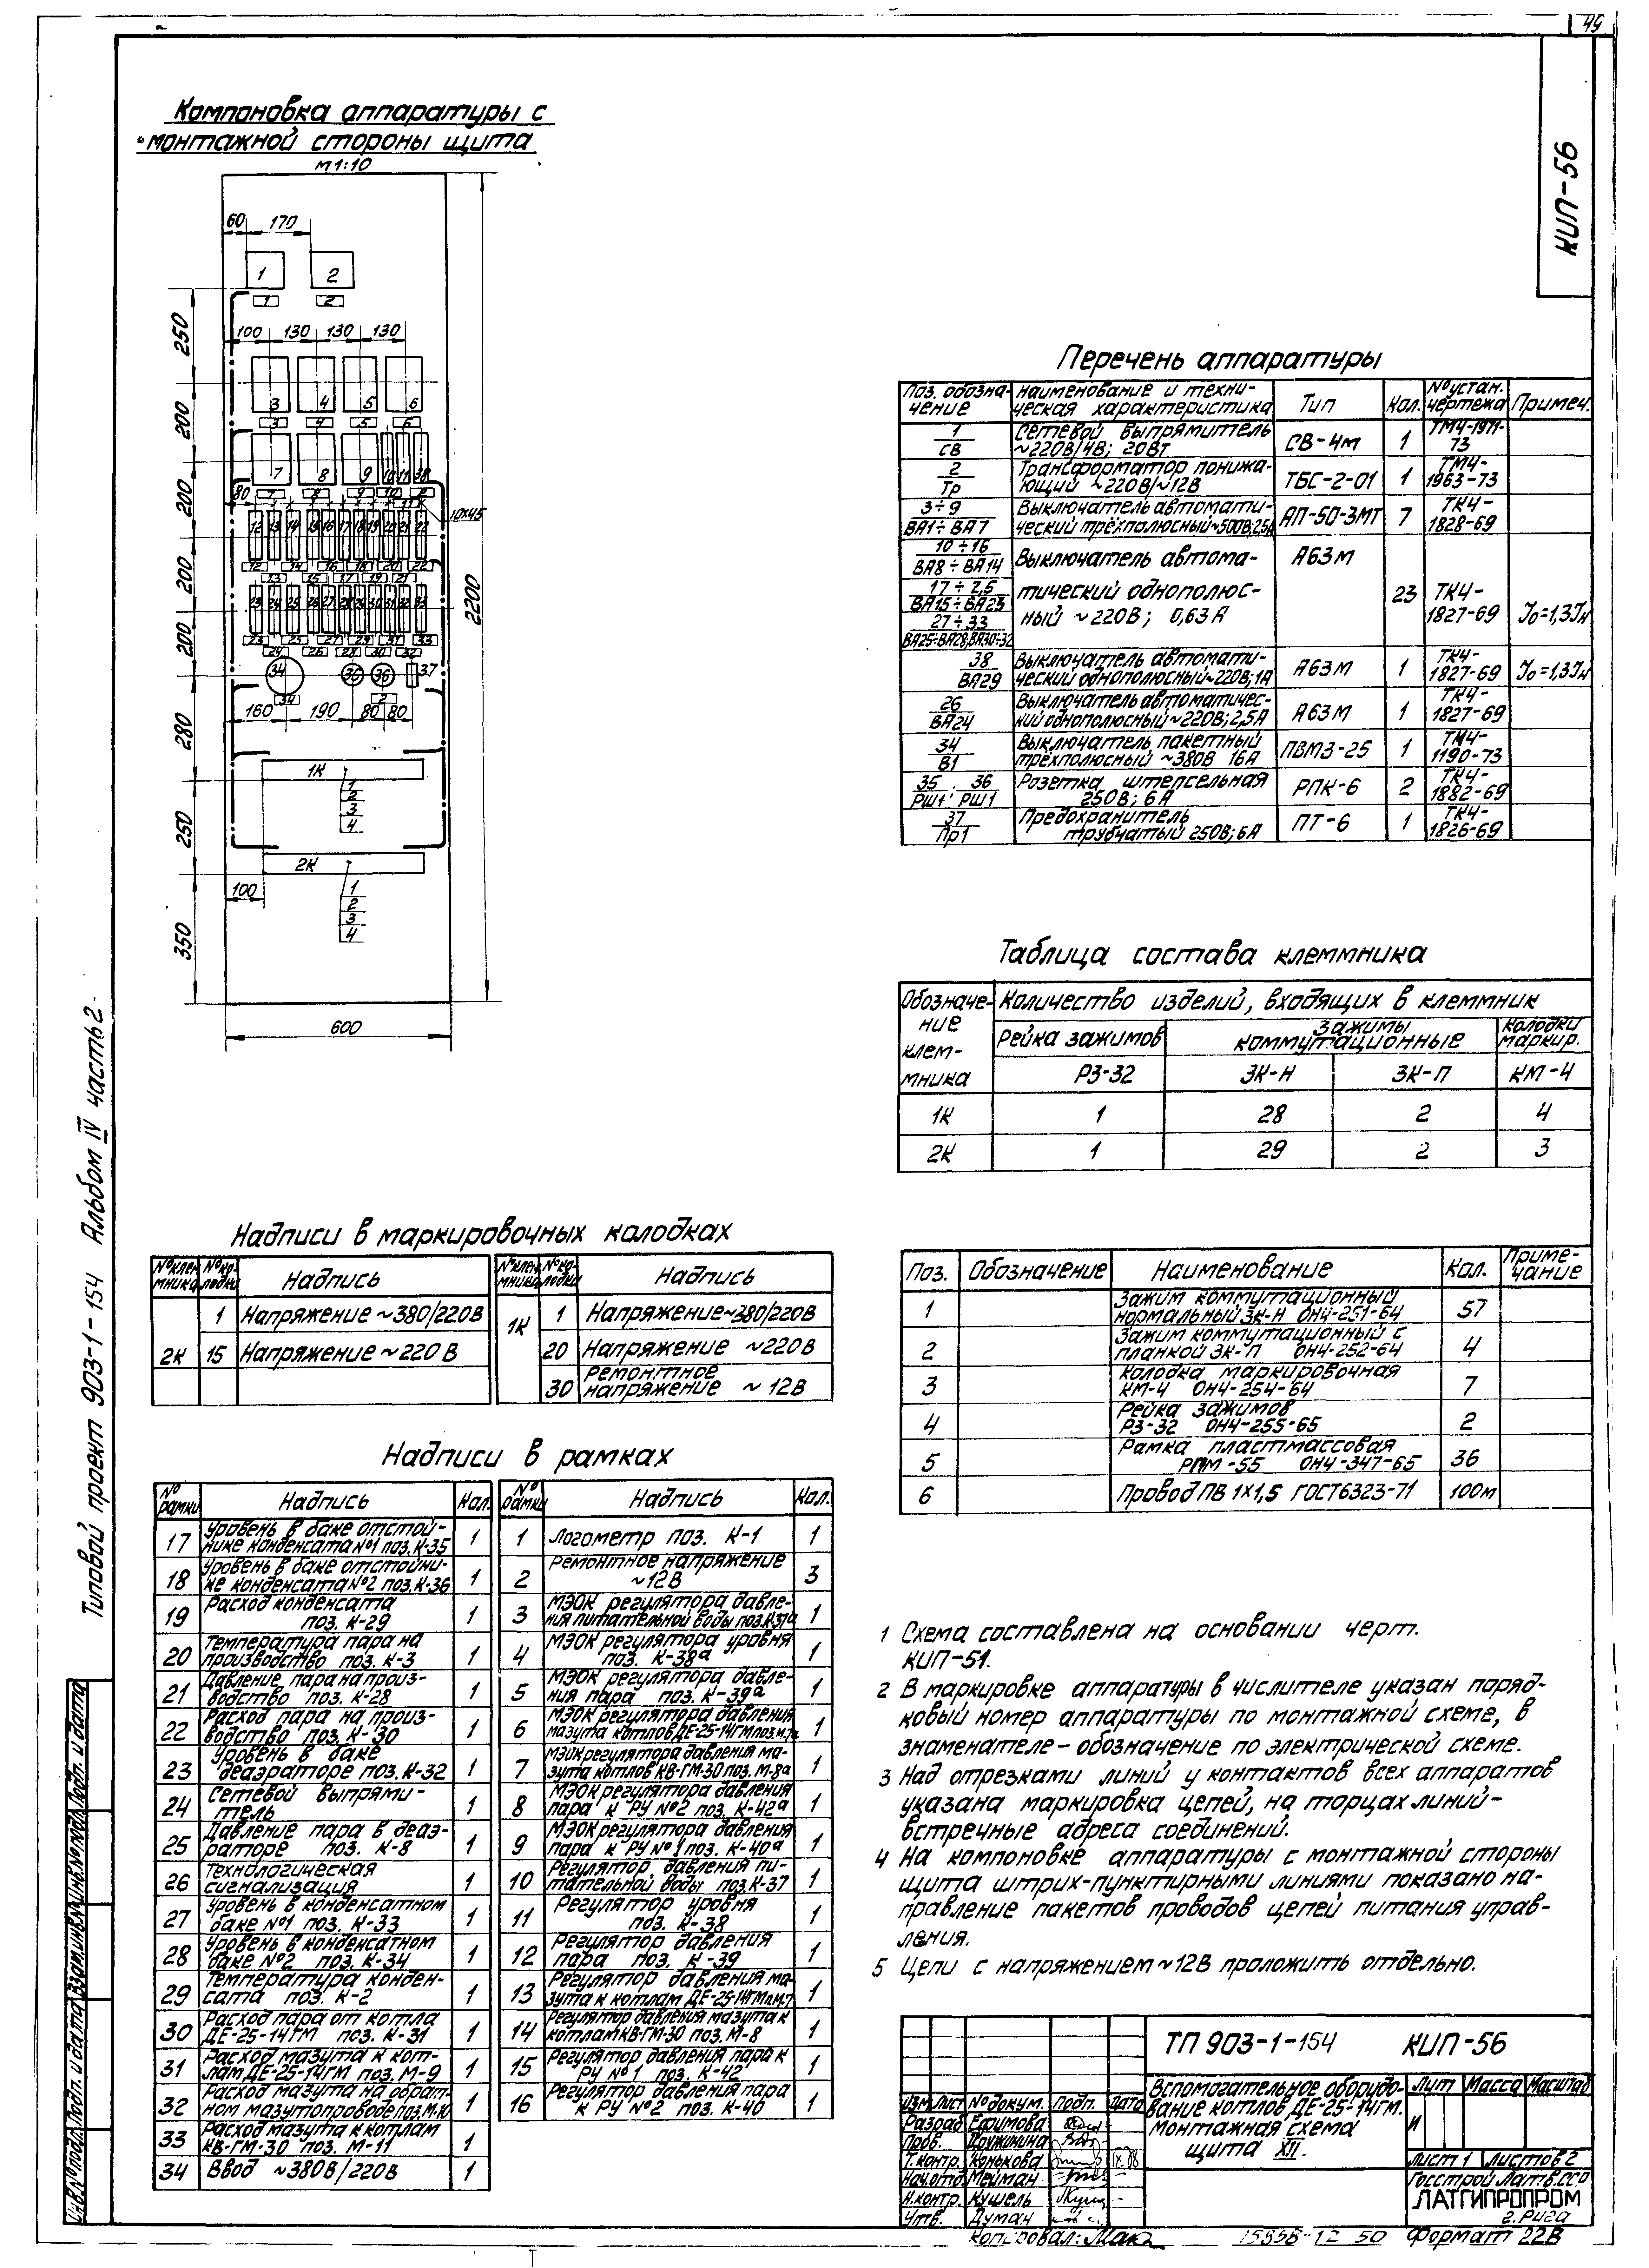 49
КИП-56
Компоновка аппаратуры с
монтажной стороны щита
М 1:10
60 170
1 2
1 2
250 200 200 200 200 280 250 350
100 130 130 130
3 4 5 6
3 4 5 6
7 8 9 10 11 38
7 8 9 10
80 11
10х45
12 13 14 15 16 17 18 19 20 21 22
12 14 16 18 20 22
13 15 17 19 21
23 24 25 26 27 28 29 30 31 32 33
23 25 27 29 31 33
24 26 28 30 32
34 35 36 37
34 2
160 190 80 80
1К
1
2
3
4
2К
1
2
3
4
100
2200
600
Перечень аппаратуры
Поз. обозна-чение Наименование и техни-ческая характеристика Тип Кол. № устан. чертежа Примеч.
1/СВ Сетевой выпрямитель ~220В/4В; 20Вт СВ-4м 1 ТМ4-1971-73
2/Тр Трансформатор понижа-ющий ~220В/~12В ТБС-2-01 1 ТМ4-1963-73
3÷9/ВА1÷ВА7 Выключатель автомати-ческий трёхполюсный ~500В;2,5А АП-50-3МТ 7 ТК4-1828-69
10÷16/ВА8÷ВА14 Выключатель автома- А63м
17÷2,5/ВА15÷ВА23 тический однополюс- 23 ТК4-
27÷33/ВА25÷ВА28;ВА30÷32 ный ~220В; 0,63А 1827-69 Jо=1,3Jн
38/ВА29 Выключатель автомати-ческий однополюсный ~220В;1А А63М 1 ТК4-1827-69 Jо=1,3Jн
26/ВА24 Выключатель автоматичес-кий однополюсный ~220В;2,5А А63М 1 ТК4-1827-69
34/В1 Выключатель пакетный трёхполюсный ~380В 16А ПВМ3-25 1 ТМ4-1190-73
35/РШ1, 36/РШ1 Розетка штепсельная 250В; 6А РПК-6 2 ТК4-1882-69
37/Пр1 Предохранитель трубчатый 250В;6А ПТ-6 1 ТК4-1826-69
Таблица состава клеммника
Обозначе-ние клем-мника Количество изделий, входящих в клеммник
Рейка зажимов Зажимы коммутационные Колодки маркир.
РЗ-32 ЗК-Н ЗК-П КМ-4
1К 1 28 2 4
2К 1 29 2 3
Надписи в маркировочных колодках
№ клем-мника № ко-лодки Надпись
2К 1 Напряжение ~380/220В
15 Напряжение ~220В
№ клем-мника № ко-лодки Надпись
1К 1 Напряжение ~380/220В
20 Напряжение ~220В
30 Ремонтное напряжение ~12В
Поз. Обозначение Наименование Кол. Приме-чание
1 Зажим коммутационный нормальный ЗК-Н ОН4-251-64 57
2 Зажим коммутационный с планкой ЗК-П ОН4-252-64 4
3 Колодка маркировочная КМ-4 ОН4-254-64 7
4 Рейка зажимов РЗ-32 ОН4-255-65 2
5 Рамка пластмассовая РПМ-55 ОН4-347-65 36
6 Провод ПВ 1х1,5 ГОСТ6323-71 100м
Надписи в рамках
№ рамки Надпись Кол.
17 Уровень в баке отстой-нике конденсата №1 поз. К-35 1
18 Уровень в баке отстойни-ке конденсата №2 поз. К-36 1
19 Расход конденсата поз. К-29 1
20 Температура пара на производство поз. К-3 1
21 Давление пара на произ-водство поз. К-28 1
22 Расход пара на произ-водство поз. К-30 1
23 Уровень в баке деаэраторе поз. К-32 1
24 Сетевой выпрями-тель 1
25 Давление пара в деаэ-раторе поз. К-8 1
26 Технологическая сигнализация 1
27 Уровень в конденсатном баке №1 поз. К-33 1
28 Уровень в конденсатном баке №2 поз. К-34 1
29 Температура конден-сата поз. К-2 1
30 Расход пара от котла ДЕ-25-14ГМ поз. К-31 1
31 Расход мазута к кот-лам ДЕ-25-14ГМ поз. М-9 1
32 Расход мазута на обрат-ном мазутопроводе поз. М-10 1
33 Расход мазута к котлам КВ-ГМ-30 поз. М-11 1
34 Ввод ~380В/220В 1
№ рамки Надпись Кол.
1 Логометр поз. К-1 1
2 Ремонтное напряжение ~12В 3
3 МЭОК регулятора давле-ния питательной воды поз. К-37а 1
4 МЭОК регулятора уровня поз. К-38а 1
5 МЭОК регулятора давле-ния пара поз. К-39а 1
6 МЭОК регулятора давления мазута котлов ДЕ-25-14ГМ поз. М-7а 1
7 МЭОК регулятора давления ма-зута котлов КВ-ГМ-30 поз. М-8а 1
8 МЭОК регулятора давления пара к РУ №2 поз. К-42а 1
9 МЭОК регулятора давления пара к РУ №1 поз. К-40а 1
10 Регулятор давления пи-тательной воды поз. К-37 1
11 Регулятор уровня поз. К-38 1
12 Регулятор давления пара поз. К-39 1
13 Регулятор давления ма-зута к котлам ДЕ-25-14ГМ п. М-7 1
14 Регулятор давления мазута к котлам КВ-ГМ-30 поз. М-8 1
15 Регулятор давления пара к РУ №1 поз. К-42 1
16 Регулятор давления пара к РУ №2 поз. К-40 1
1 Схема составлена на основании черт.
КИП-51.
2 В маркировке аппаратуры в числителе указан поряд-
ковый номер аппаратуры по монтажной схеме, в
знаменателе - обозначение по электрической схеме.
3 Над отрезками линий у контактов всех аппаратов
указана маркировка цепей, на торцах линий -
встречные адреса соединений.
4 На компоновке аппаратуры с монтажной стороны
щита штрих-пунктирными линиями показано на-
правление пакетов проводов цепей питания управ-
ления.
5 Цепи с напряжением ~12В проложить отдельно.
ТП 903-1-154 КИП-56
Вспомогательное оборудо-
вание котлов ДЕ-25-14ГМ.
Монтажная схема
щита XII.
Лит Масса Масштаб
И
Лист 1 Листов 2
Госстрой Латв.ССР
ЛАТГИПРОПРОМ
г. Рига
Изм. Лист № докум. Подп. Дата
Разраб. Ефимова
Пров. Дружинина
Т. контр. Конькова
Нач. отд. Мейман
Н. контр. Кушель
Утв. Думач
Копировал: 15858-12 50 Формат 22В
Типовой проект 903-1-154 Альбом IV часть 2.
Инв. № подл. Подп. и дата Взам. инв. № Инв. № дубл. Подп. и дата